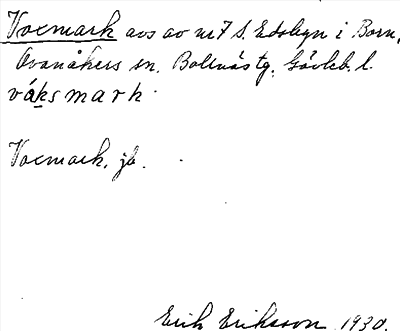 Vacmark avs av nr 7 S. Edsbyn i Born,
Ovanåkers sn. Bollnäs tg. Gävleb. l.
våksmark.
Vacmark, jb.
Erik Eriksson 1930.